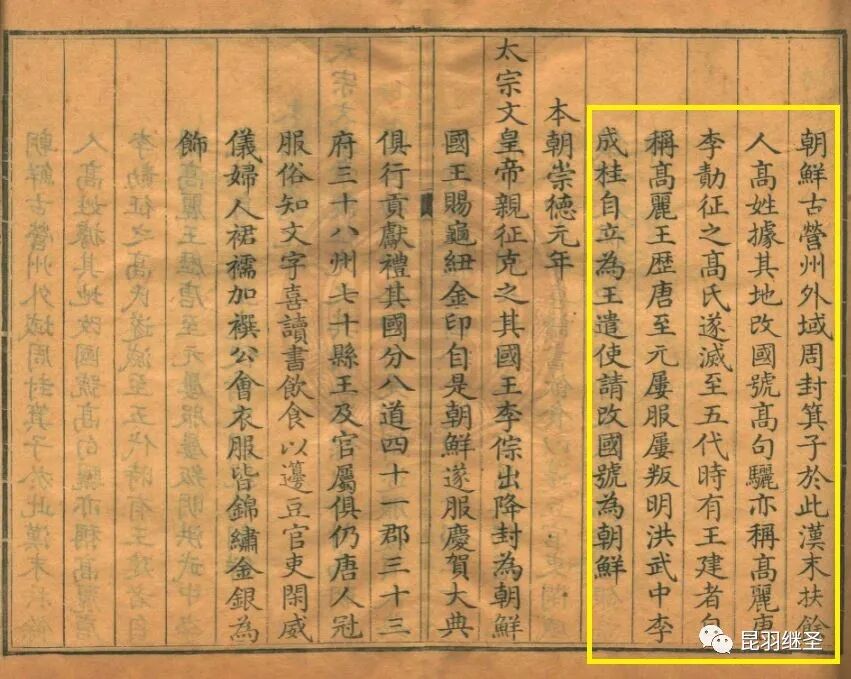 朝鮮古營州外域周封箕子於此漢末扶餘
人髙姓據其地改國號髙句驪亦稱髙麗唐
李勣征之髙氏遂滅至五代時有王建者自
稱髙麗王歷唐至元屢服屢叛明洪武中李
成桂自立為王遣使請改國號為朝鮮
本朝崇德元年
太宗文皇帝親征克之其國王李倧出降封為朝鮮
國王賜龜紐金印自是朝鮮遂服慶賀大典
俱行貢獻禮其國分八道四十一郡三十三
府三十八州七十縣王及官屬俱仍唐人冠
服俗知文字喜讀書飲食以籩豆官吏閑威
儀婦人裙襦加襈公會衣服皆錦繡金銀為
飾
昆羽继圣